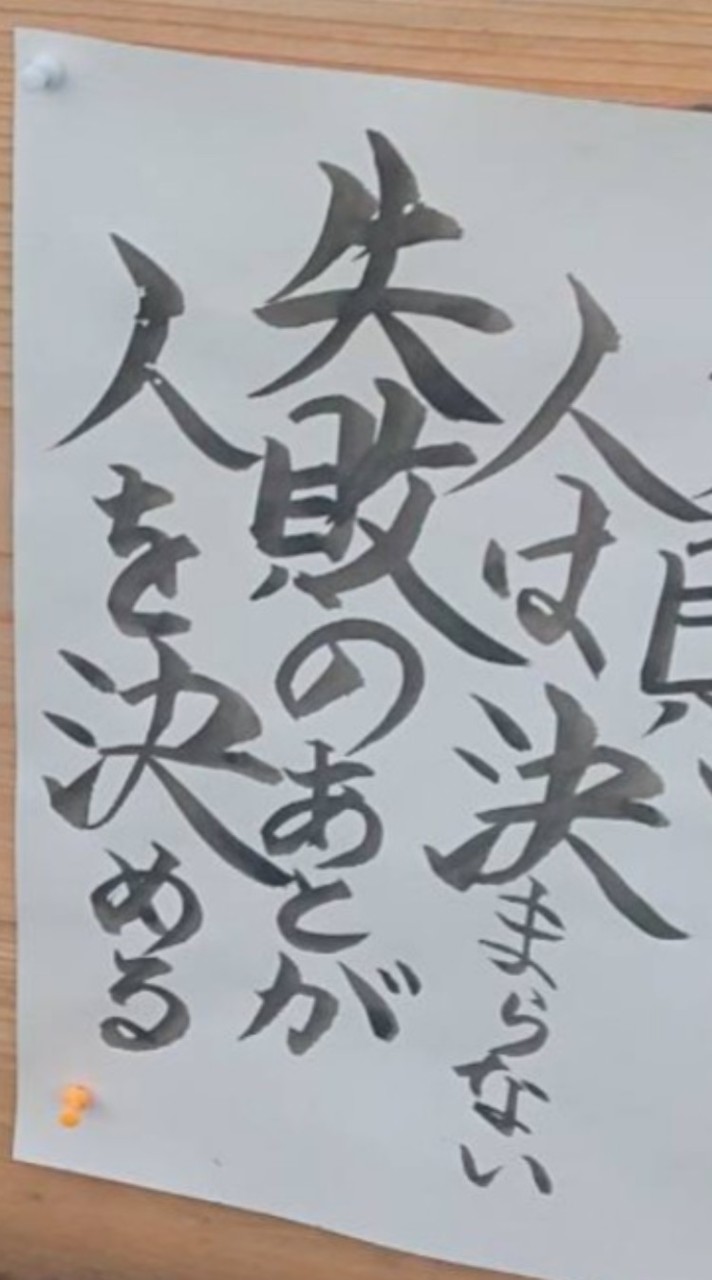 人は決まらない
失敗のあとが
人を決める